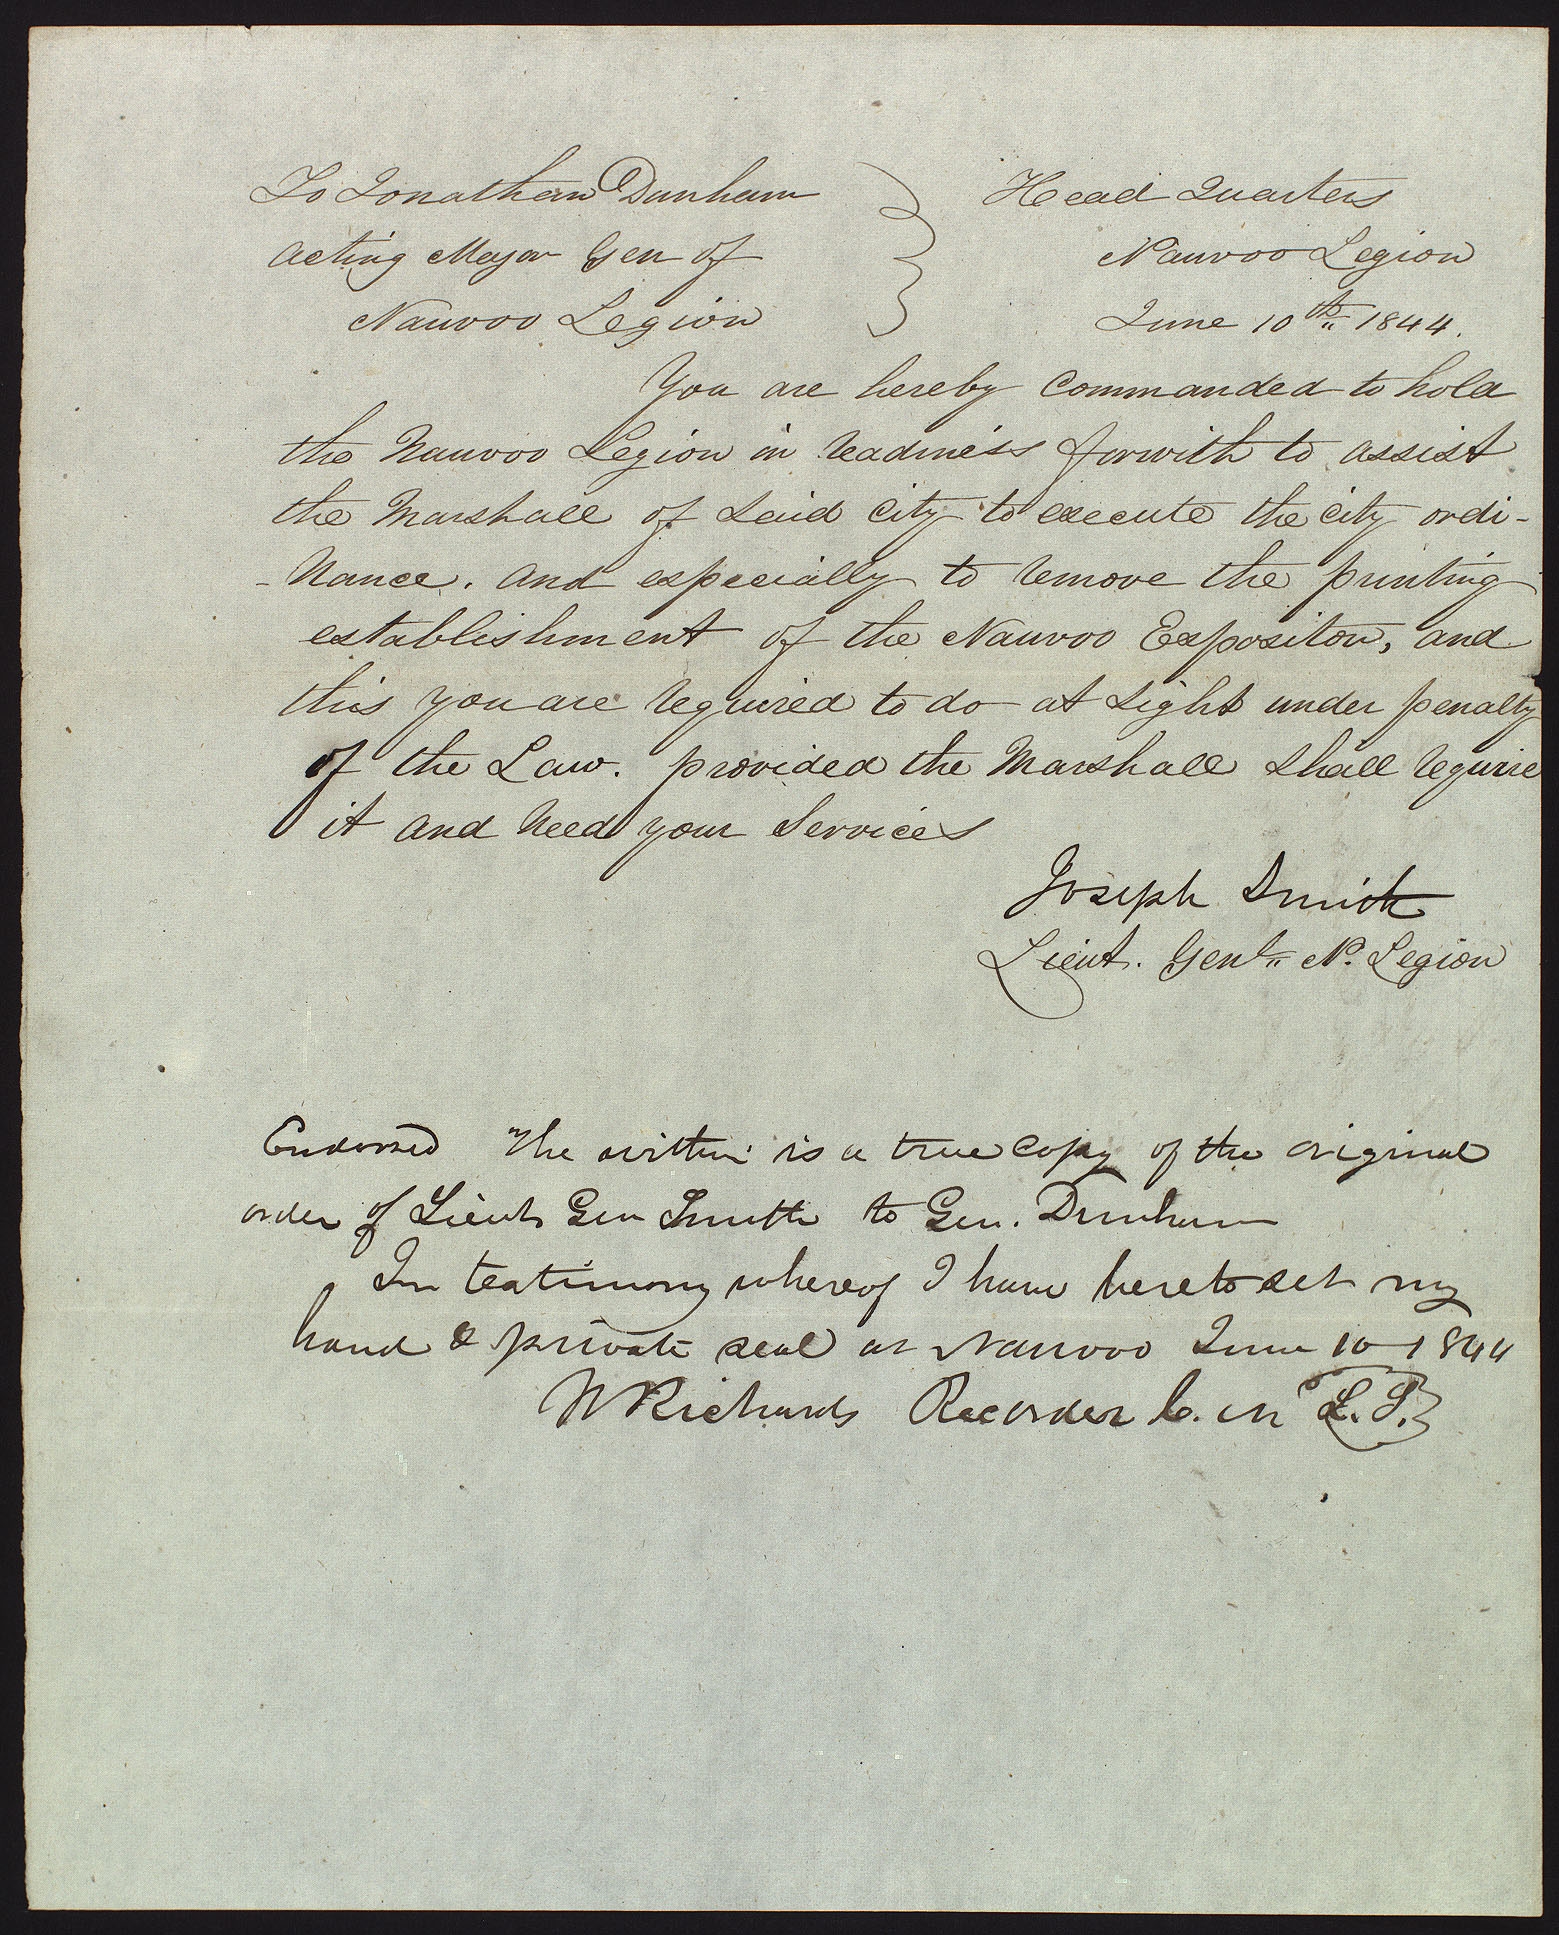 To Jonathan Dunham
acting Major Gen of
Nauvoo Legion
Head Quarters
Nauvoo Legion
June 10th 1844.
You are hereby commanded to hold
the Nauvoo Legion in readiness forwith to assist
the Marshall of said city to execute the city ordi-
-nance. and especially to remove the printing
establishment of the Nauvoo Expositor, and
this you are required to do at sight under penalty
of the Law. provided the Marshall shall require
it and need your services
Joseph Smith
Lieut. Genl. N. Legion
Endorsed The within is a true copy of the original
order of Lieut Gen Smith to Gen. Dunham
In testimony whereof I have hereto set my
hand & private seal at Nauvoo June 10 1844
W Richards Recorder C. N. L. S.